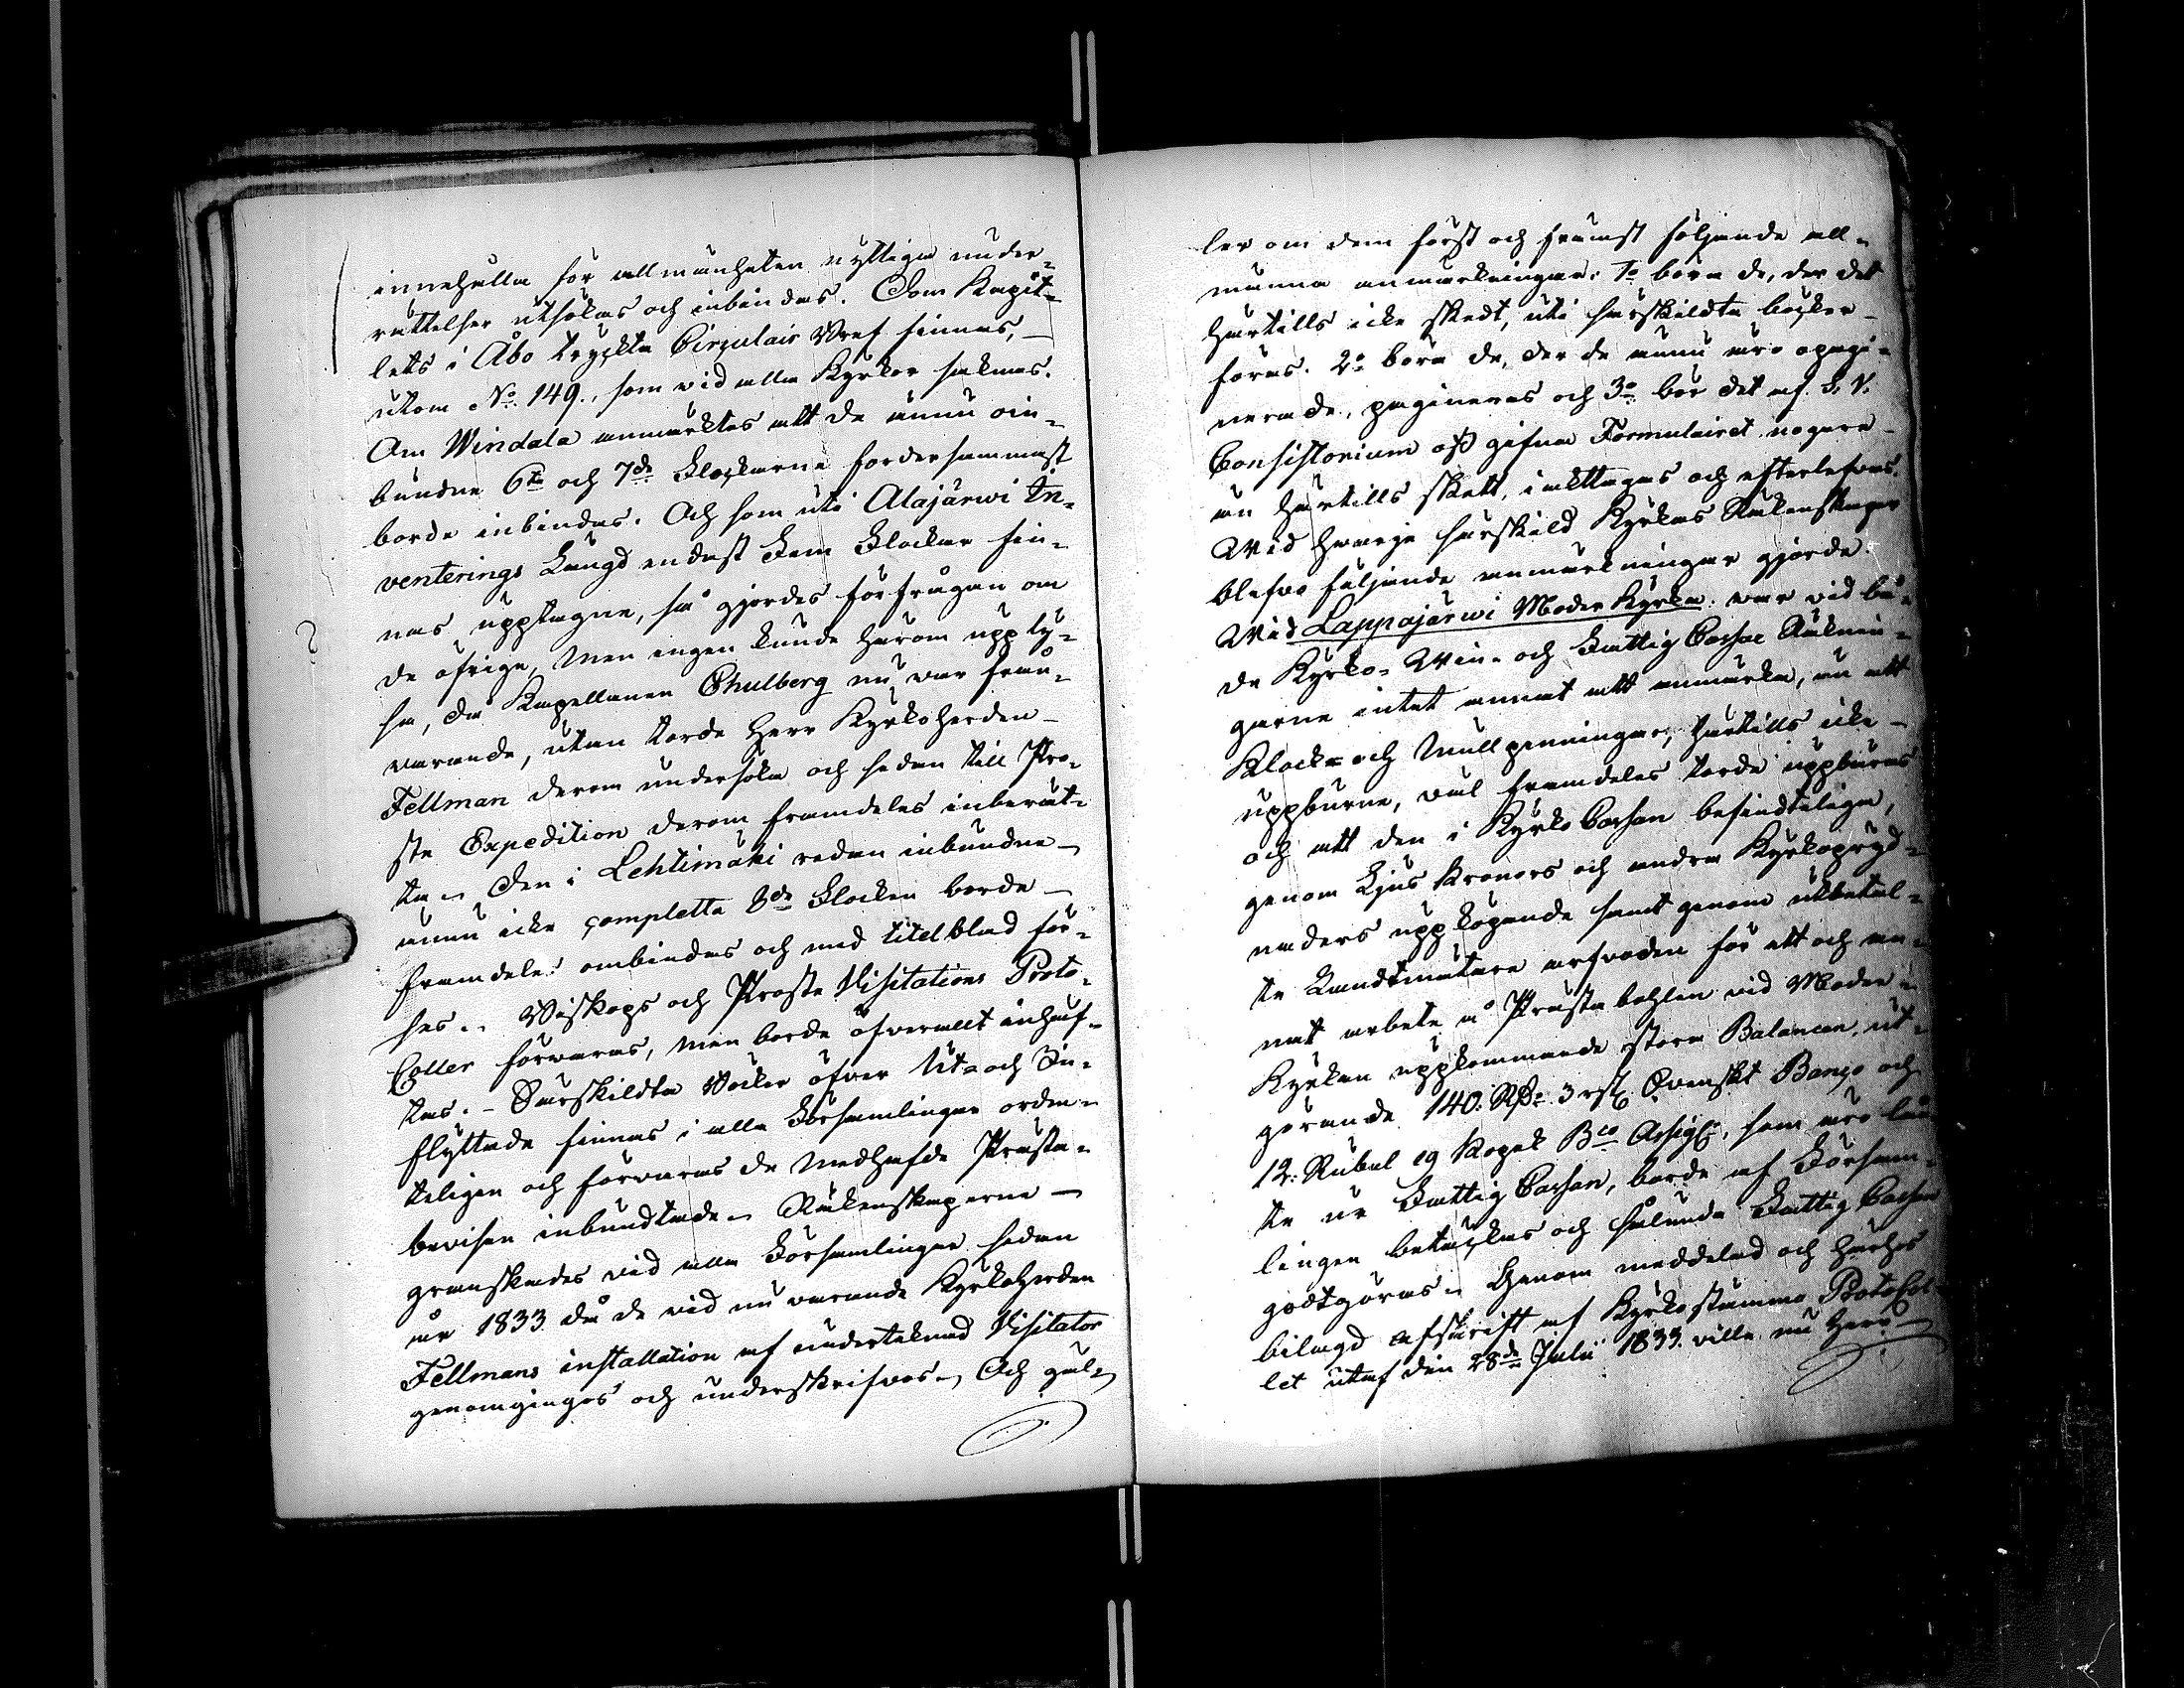 innehålla för allmänheten nyttiga under-
rättelser utsökas och inbindas. Dom Kapit-
lets i Åbo tryckta Circulair Bref finnas,
utom No 149., som vid alla Kyrkor saknas.
Om Windala anmärktes att de ännu oin-
bundne 6te och 7de Flockarne fordersammast
borde inbindas. Och som uti Alajärwi In-
venterings Längd endast Fem Flockar fin-
nas upptagne, så gjordes förfrågan om
de öfriga, Men ingen kunde härom upply-
sa, då Kapellanen Thulberg nu var från-
varande, utan torde Herr Kyrkoherden
Fellman derom undersöka och sedan till Pro-
ste Expedition derom framdeles inberät-
ta. Den i Lehtimäki redan inbundne
ännu icke completta 8de Flocken borde
framdeles ombindas och med titelblad för-
ses. Biskops och Proste Visitations Proto-
Coller förvaras, Men borde öfverallt inhäf-
tas. - Särskildta Böcker öfver Ut- och In-
flyttade finnas i alla Församlingar orden-
teligen och förvaras de medhafde Präste-
bevisen inbundtade. Räkenskaperne
granskades vid alla Församlingar sedan
år 1833 då de vid nu varande Kyrkoherden
Fellmans installation af undertecknad Visitator
genomgingos och underskrifvos. Och gäl-
ler om dem först och främst följande all-
männa anmärkningar: 1o böra de, der det
härtills icke skedt, uti särskildta böcker
föras. 2o böra de, der de ännu äro opagi-
nerade, pagineras och 3o bör det af S. V.
Consistorium oss gifna Formulairet nogare
än härtills skett, iakttagas och efterlefvas.
Wid hwarje särskild Kyrkas Räkenskaper
blefvo följande anmärkningar gjorde.
Wid Lappajärwi Moder Kyrka var vid bå-
de Kyrko- Win- och Fattig Cassae Räknin-
garne intet annat att anmärka, än att
Klock- och Mullpenningar, härtills icke
uppburne, väl framdeles torde uppbäras
och att den i Kyrko Cassan befindteliga,
genom Ljus Kronors och andra Kyrkopryd-
naders uppköpande samt genom utbetal-
te Landtmätare arfvoden för ett och an-
nat arbete å Präste bohlen vid Moder
Kyrkan uppkommande stora Balancen, ut-
görande 140. Rd: 3 rst. Svenskt Banco och
12. Rubel 19 Kopek Bco Assigr, som äro lån-
te ur Fattig Cassan, borde af Församl-
lingen betäckas och sålunda Fattig Cassan
godtgöras. Genom meddelad och härhos
bilagd afskrift af Kyrkostämmo Protocol-
let utaf den 28de Julii 1833. ville nu Herr